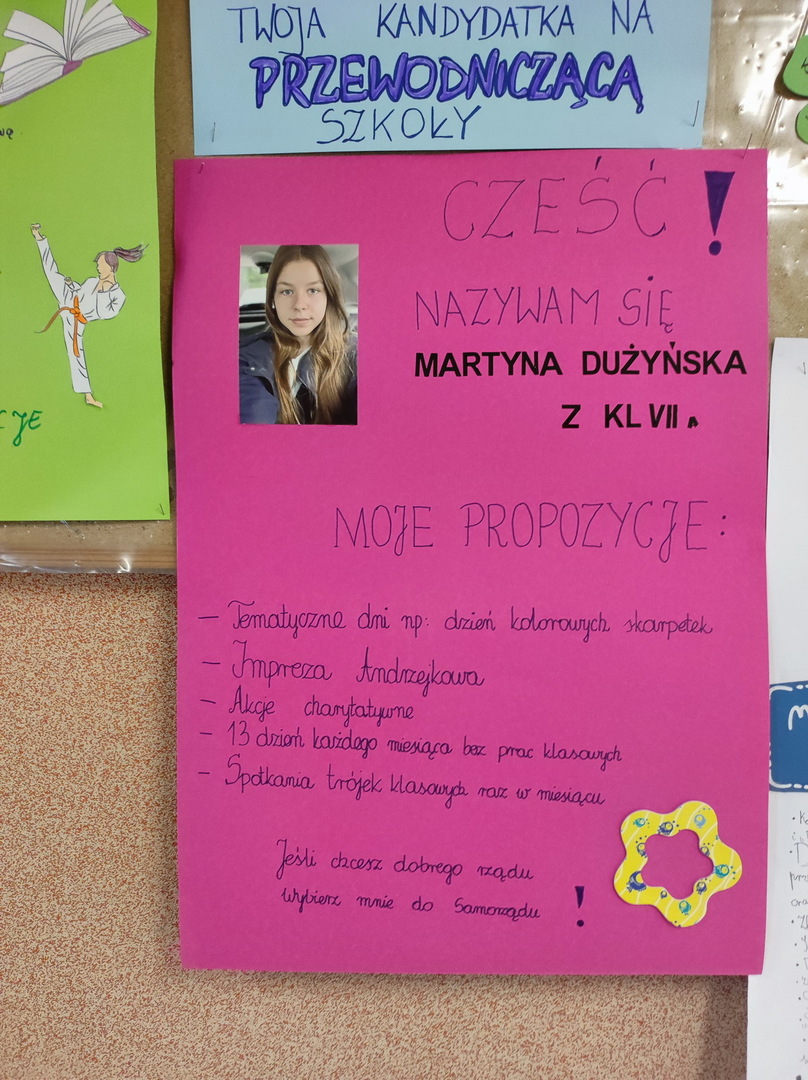 TWOJA KANDYDATKA NA
PRZEWODNICZĄCĄ
SZKOŁY
CZEŚĆ!
NAZYWAM SIĘ
MARTYNA DUŻYŃSKA
Z KL VII A
MOJE PROPOZYCJE:
– Tematyczne dni np: dzień kolorowych skarpetek
– Impreza Andrzejkowa
– Akcje charytatywne
– 13 dzień każdego miesiąca bez prac klasowych
– Spotkania trójek klasowych raz w miesiącu
Jeśli chcesz dobrego rządu
wybierz mnie do Samorządu !